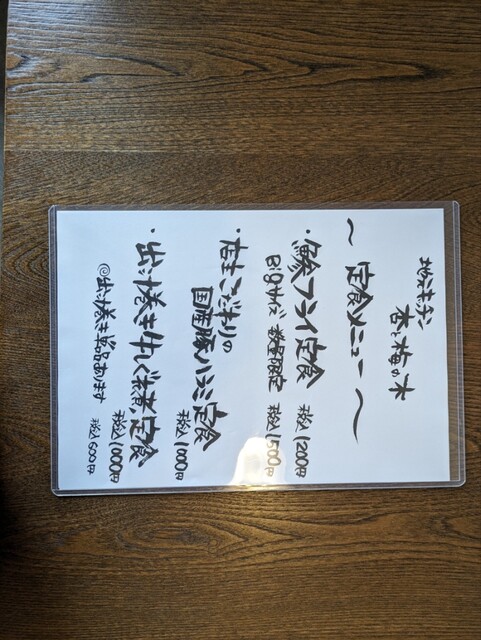 杏と梅の木
〜定食メニュー〜
・鯵フライ定食 税込1200円
Bigサイズ 数量限定 税込1500円
・店主こだわりの
国産豚ハラミ定食 税込1000円
・出し巻き牛しぐれ煮定食 税込1000円
@出し巻き単品あります 税込600円